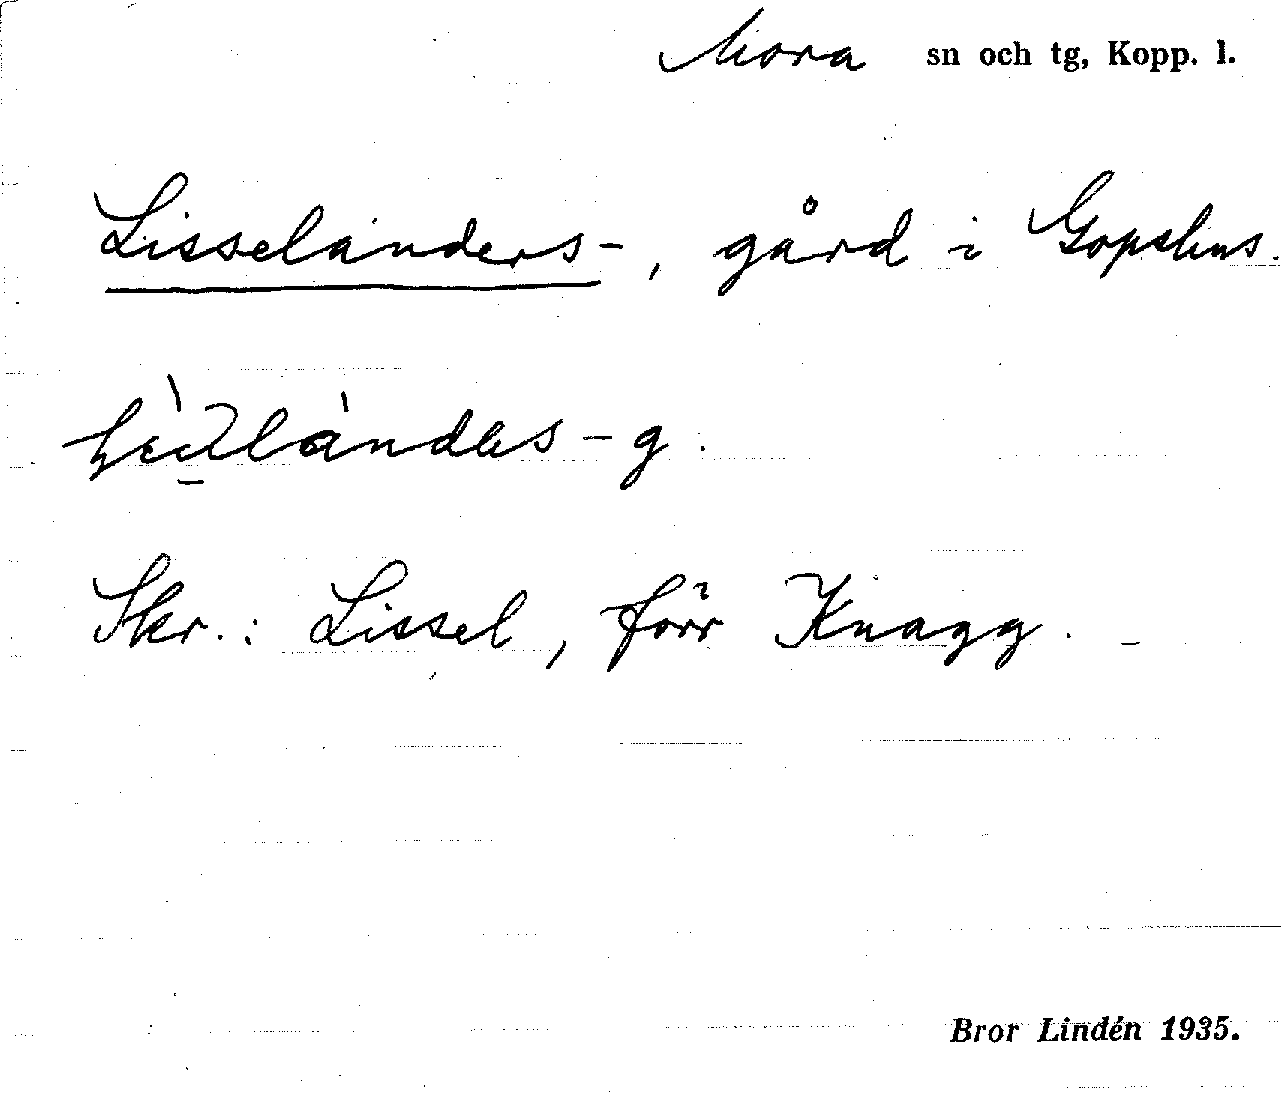 Mora sn och tg, Kopp. l.
Lisselanders-, gård i Gopshus.
Skr.: Lissel, förr Knagg. –
Bror Lindén 1935.